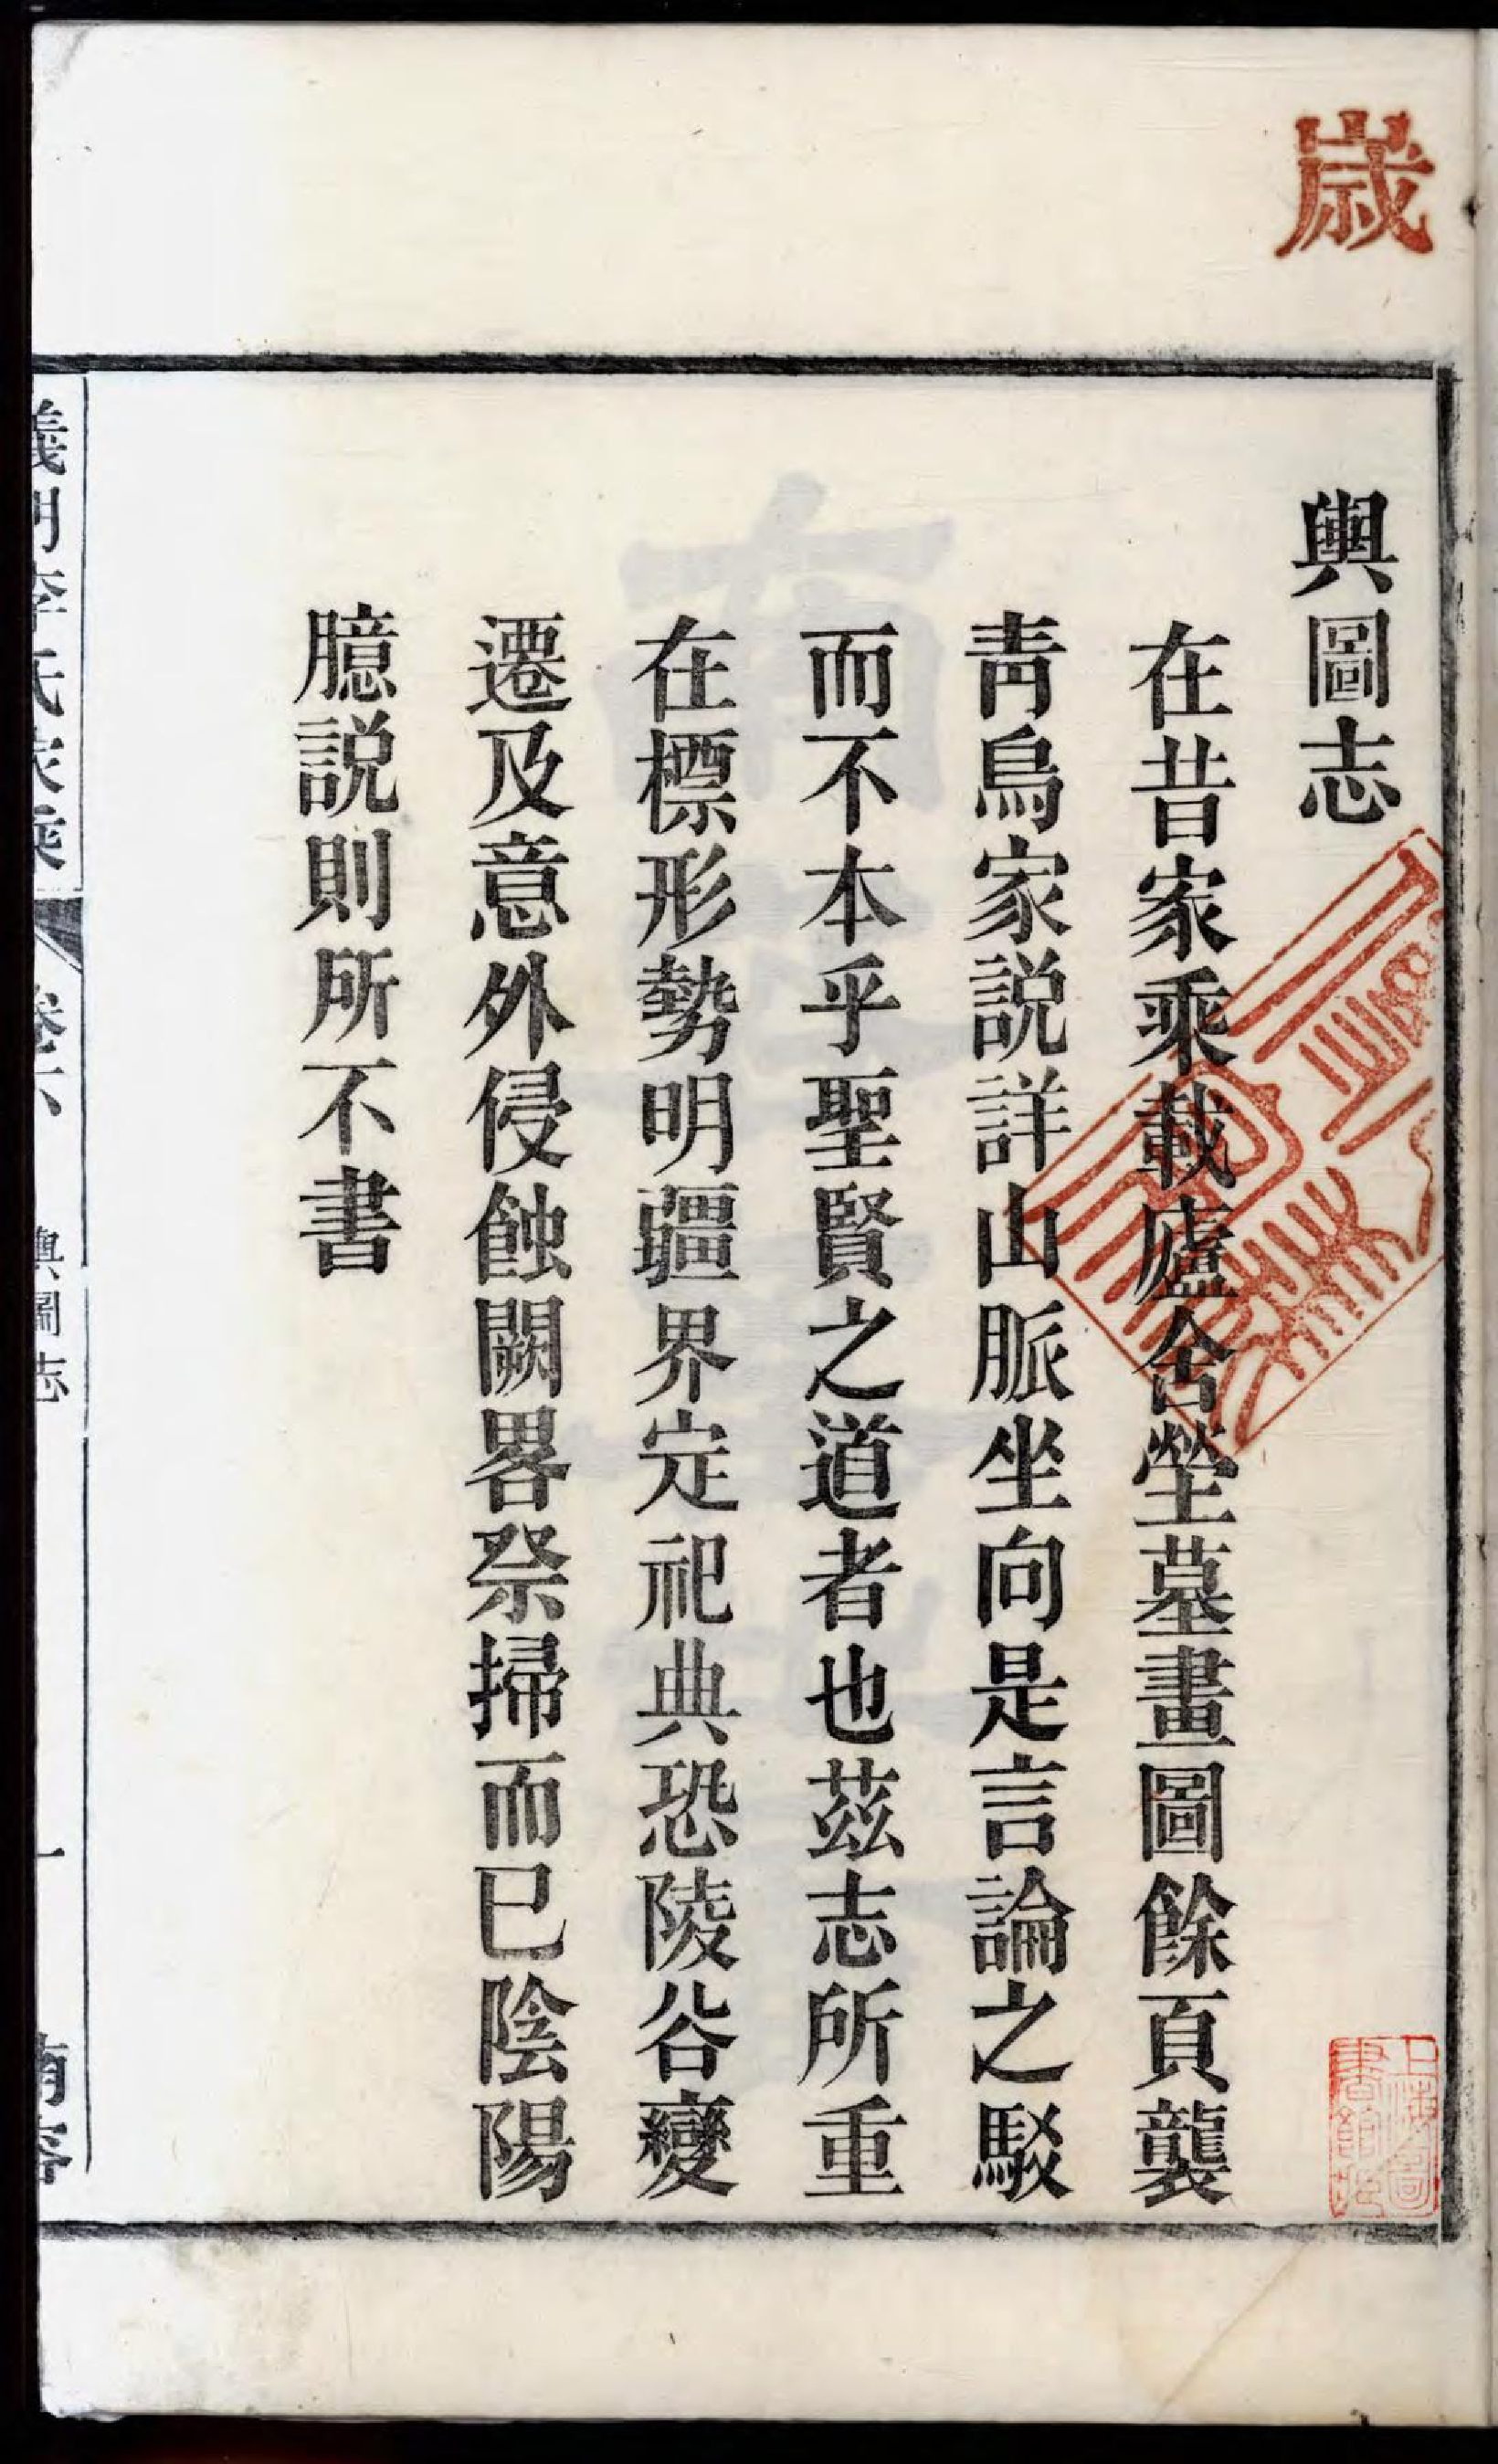 歳
輿圖志
在昔家乘載廬舍塋墓畫圖餘頁襲
靑烏家説詳山脈坐向是言論之駁
而不本乎聖賢之道者也茲志所重
在標形勢明疆界定祀典恐陵谷變
遷及意外侵蝕闕畧祭掃而已陰陽
臆説則所不書
義門李氏家乘
卷六
輿圖志
一
上海圖書館藏